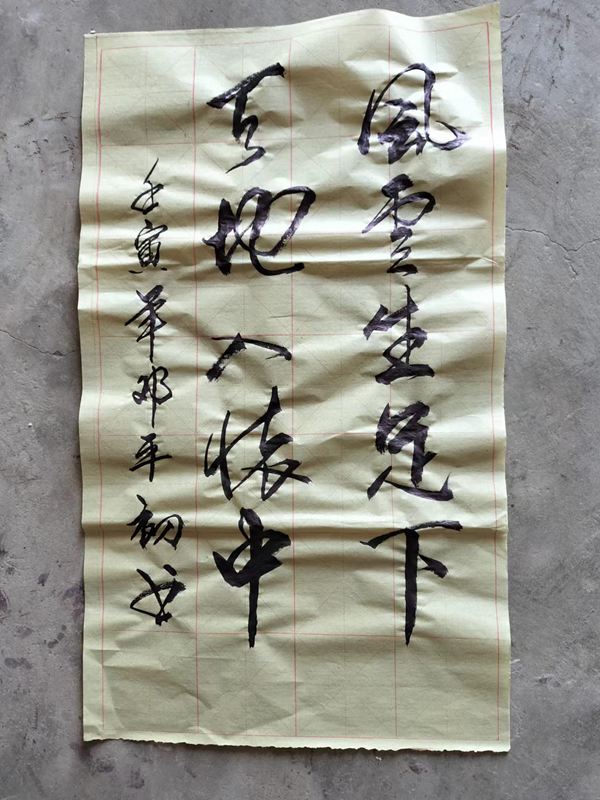 風雲生足下
天地入懷中
壬寅年邓平初书